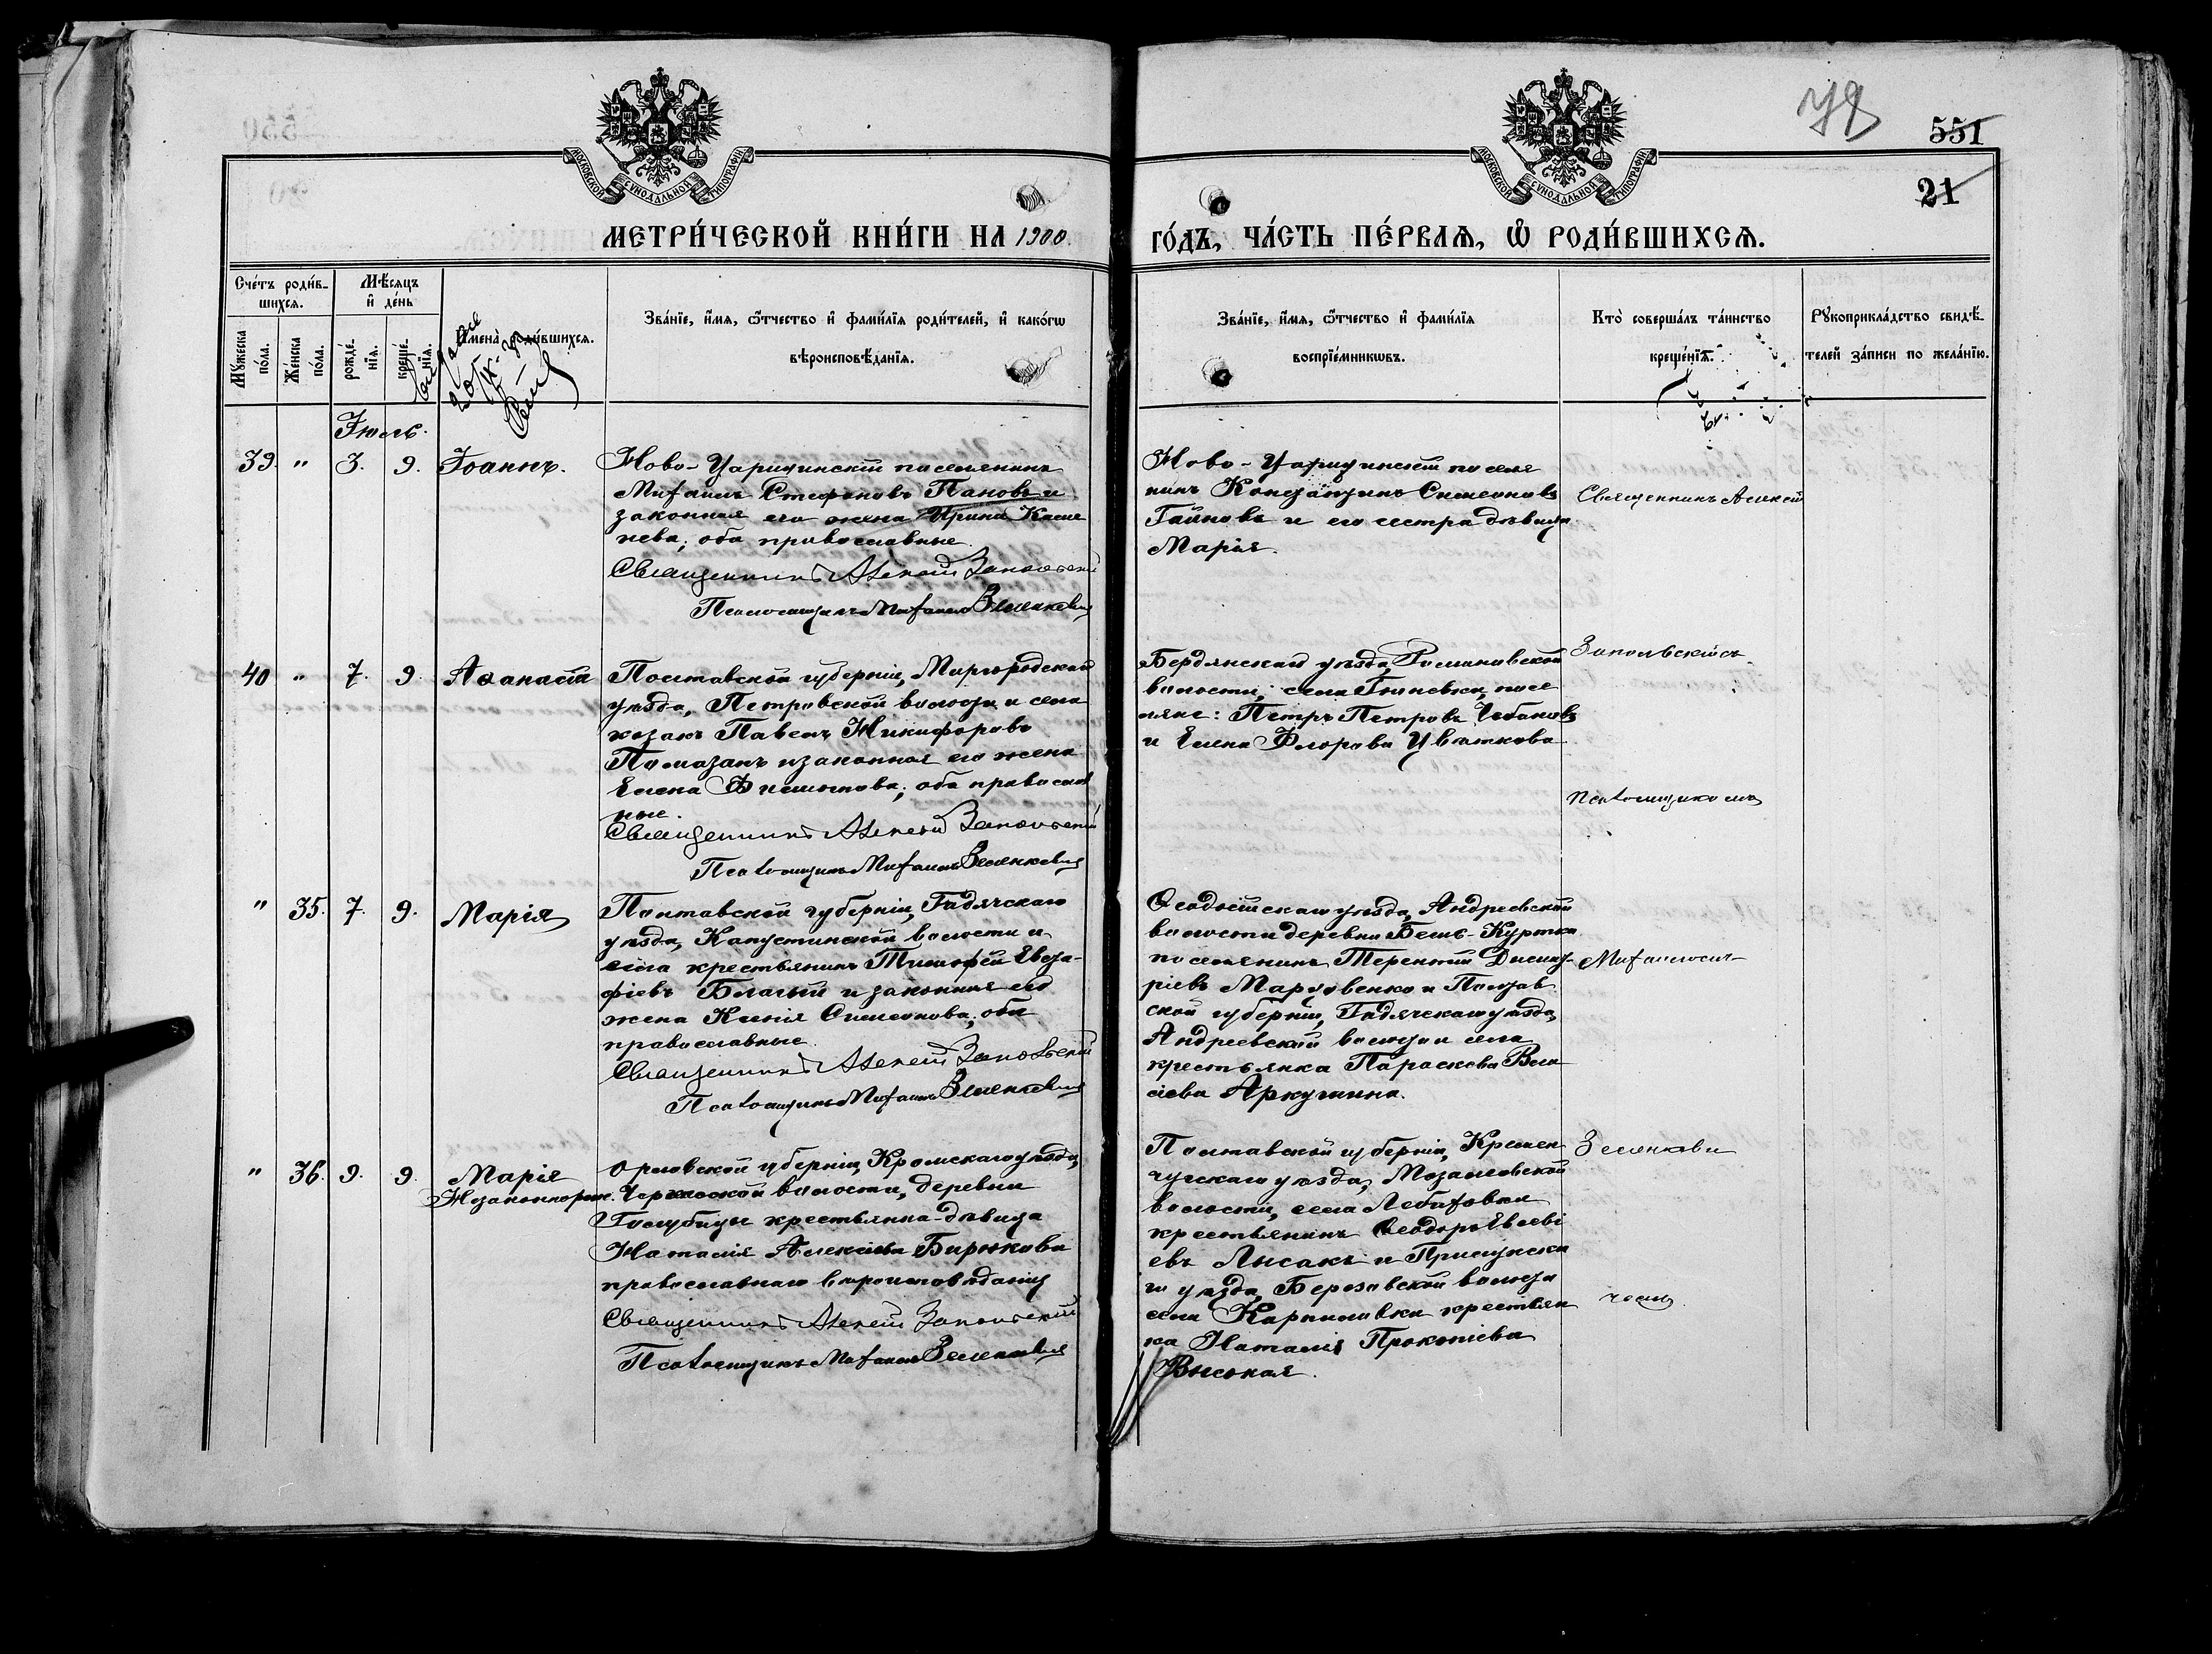 78
551
21
МОСКОВСКОЙ СѴНОДАЛЬНОЙ ТИПОГРАФІИ
МОСКОВСКОЙ СѴНОДАЛЬНОЙ ТИПОГРАФІИ
МЕТРИ́ЧЕСКОЙ КНИ́ГИ НА 1900
ГО́ДЪ, ЧА́СТЬ ПЕ́РВАѦ, Ѽ РОДИ́ВШИХСѦ.
Сче́тъ роди́в-
шихсѧ.
Мꙋ́жеска по́ла.
Же́нска по́ла.
Мѣ́сѧцъ и҆ де́нь
рожде́нїѧ.
креще́нїѧ.
И҆мена̀ роди́вшихсѧ.
Зва́нїе, и҆́мѧ, ѻ҆́тчество и҆ фами́лїѧ роди́телей, и҆ како́гѡ
вѣроисповѣ́данїѧ.
Зва́нїе, и҆́мѧ, ѻ҆́тчество и҆ фами́лїѧ
воспрїе́мникѡвъ.
Кто̀ соверша́лъ та́инство
креще́нїѧ.
Рꙋкоприкла́дство свидѣ́-
телей за́писи по жела́нїю.
Іюль.
39. " 3. 9. Іоаннъ.
Ново-Царицинскій поселянинъ
Михаилъ Стефановъ Пановъ и
законная его жена Ирина
оба православные.
Священникъ Алексій Запольскій
Псаломщикъ Михаилъ Зеленкевич
Ново-Царицинскій поселя
нинъ Константинъ Симеоновъ
и его сестра дѣвица
Марія.
Священникъ Алексій
40 " 7. 9. Аѳанасій
Полтавской губерніи, Миргородскаго
уѣзда, Петровской волости и села
козакъ Павелъ Никифоровъ
Помазанъ и законная его жена
Елена Филипова; оба православ
ные.
Священникъ Алексій Запольскій
Псаломщикъ Михаилъ Зеленкевич
Бердянскаго уѣзда, Романовской
волости, села посе
ляне: Петръ Петровъ Чебановъ
и Елена Флорова Цвѣткова
Запольскій съ
псаломщикомъ
" 35. 7. 9. Марія
Полтавской губерніи, Гадячскаго
уѣзда, Капустинской волости и
села крестьянинъ Тимофей Евста-
фіевъ Благий и законная его
жена Ксенія Симеонова; оба
православные.
Священникъ Алексій Запольскій
Псаломщикъ Михаилъ Зеленкевич
Ѳеодосійскаго уѣзда, Андреевской
волости деревни Бешъ-Куртка
поселянинъ Терентій Димит-
ріевъ Мартовенко и Полтав
ской губерніи, Гадячскаго уѣзда,
Андреевской волости и села
крестьянка Параскева Вла
сіева Аркушина.
Михаиломъ
" 36. 9. 9. Марія
Незаконнорож.
Орловской губерніи, Кромскаго уѣзда,
волости, деревни
Голубицы крестьянка-дѣвица
Наталія Алексіева Бирюкова
православнаго вѣроисповѣданія
Священникъ Алексій Запольскій
Псаломщикъ Михаилъ Зеленкевич
Полтавской губерніи, Кремен
чугскаго уѣзда,
волости, села
крестьянинъ Ѳеодоръ Евсеві
евъ Лысакъ и Прилукска
го уѣзда, Березовской волости
села Карпиловки крестьян
ка Наталія Прокопіева
Высокая.
Зеленкеви
чемъ